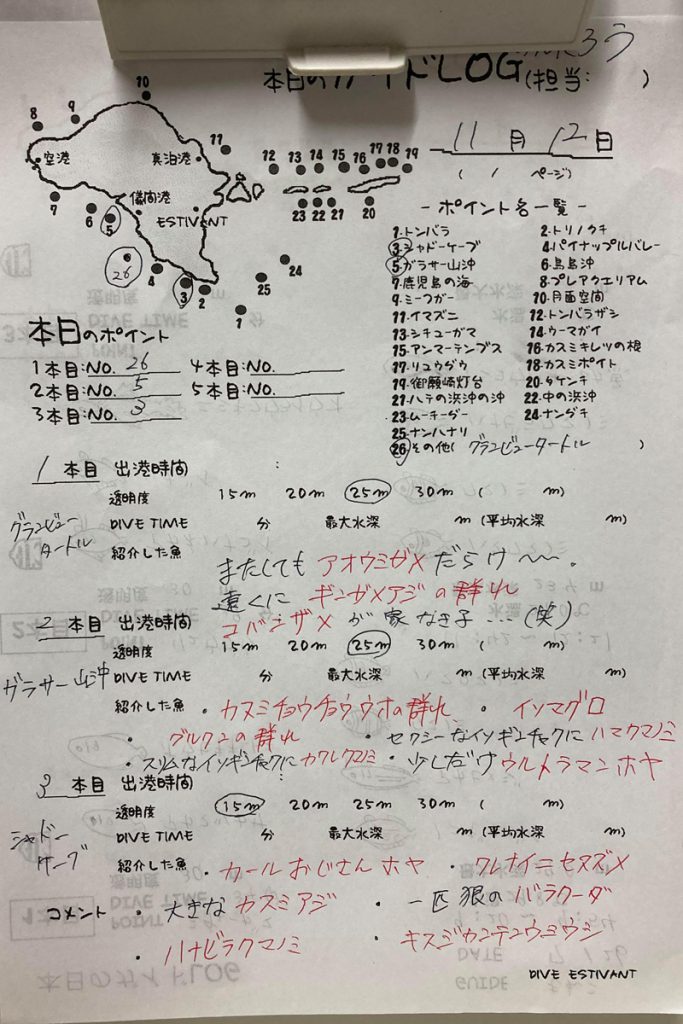 本日のガイドLOG(担当: ろう )
11月 12日
( / ページ)
10
8 9
空港 真泊港
11 12 13 14 15 16 17 18 19
儀間港
7 6 5
ESTIVANT
23 22 21 20
26 4 3 2 25 24 1
- ポイント名一覧 -
1.トンバラ 2.トリノクチ
3.シャドーケーブ 4.パイナップルバレー
5.ガラサー山沖 6.鳥島沖
7.鹿児島の海 8.プレアクエリアム
9.ミーフガー 10.月面空間
11.イマズニ 12.トンバラザシ
13.シチューガマ 14.ウーマガイ
15.アンマーテンブス 16.カスミキレツの根
17.リュウグウ 18.カスミポイント
19.御願崎灯台 20.タケンチ
21.ハテの浜沖の沖 22.中の浜沖
23.ムーチーグー 24.ナングチ
25.ナンハナリ
26.その他( グランビュータートル )
本日のポイント
1本目:NO. 26 4本目:NO.
2本目:NO. 5 5本目:NO.
3本目:NO. 3
1 本目 出港時間 :
透明度 15m 20m 25m 30m ( m)
グランビュータートル
DIVE TIME 分 最大水深 m (平均水深 m)
紹介した魚
またしても アオウミガメだらけ〜〜.
遠くに ギンガメアジの群れ
コバンザメが 家なき子…(笑)
2 本目 出港時間 :
透明度 15m 20m 25m 30m ( m)
ガラサー山沖
DIVE TIME 分 最大水深 m (平均水深 m)
紹介した魚 ・カスミチョウチョウウオの群れ、 ・イソマグロ
・グルクンの群れ ・セクシーなイソギンチャクにハマクマノミ
・スリムなイソギンチャクにカクレクマノミ ・少しだけウルトラマンホヤ
3 本目 出港時間 :
透明度 15m 20m 25m 30m ( m)
シャドーケーブ
DIVE TIME 分 最大水深 m (平均水深 m)
紹介した魚 ・カールおじさんホヤ ・クレナイニセスズメ
コメント ・大きなカスミアジ ・一匹狼のバラクーダ
・ハナビラクマノミ ・キスジカンテンウミウシ
DIVE ESTIVANT